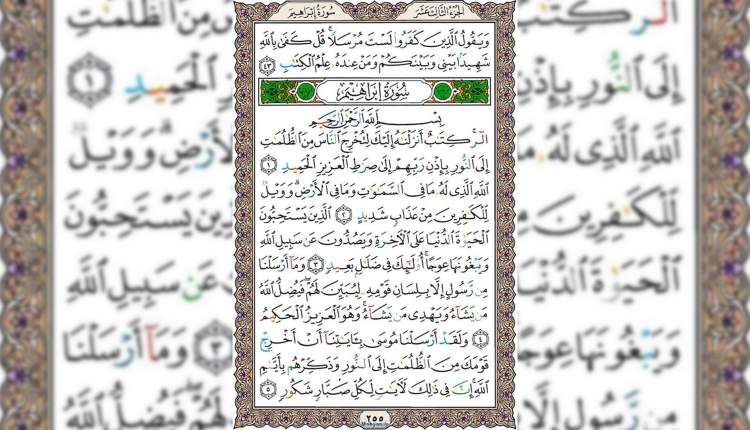 الجزء الثالث عشر سورة إبراهيم
وَيَقُولُ ٱلَّذِينَ كَفَرُوا۟ لَسْتَ مُرْسَلًا ۚ قُلْ كَفَىٰ بِٱللَّهِ
شَهِيدًۢا بَيْنِى وَبَيْنَكُمْ وَمَنْ عِندَهُۥ عِلْمُ ٱلْكِتَٰبِ ٤٣
سُورَةُ إِبْرَاهِيمَ
بِسْمِ ٱللَّهِ ٱلرَّحْمَٰنِ ٱلرَّحِيمِ
الٓر ۚ كِتَٰبٌ أَنزَلْنَٰهُ إِلَيْكَ لِتُخْرِجَ ٱلنَّاسَ مِنَ ٱلظُّلُمَٰتِ
إِلَى ٱلنُّورِ بِإِذْنِ رَبِّهِمْ إِلَىٰ صِرَٰطِ ٱلْعَزِيزِ ٱلْحَمِيدِ ١
ٱللَّهِ ٱلَّذِى لَهُۥ مَا فِى ٱلسَّمَٰوَٰتِ وَمَا فِى ٱلْأَرْضِ ۗ وَوَيْلٌ
لِّلْكَٰفِرِينَ مِنْ عَذَابٍ شَدِيدٍ ٢ ٱلَّذِينَ يَسْتَحِبُّونَ
ٱلْحَيَوٰةَ ٱلدُّنْيَا عَلَى ٱلْءَاخِرَةِ وَيَصُدُّونَ عَن سَبِيلِ ٱللَّهِ
وَيَبْغُونَهَا عِوَجًا ۚ أُو۟لَٰٓئِكَ فِى ضَلَٰلٍۭ بَعِيدٍ ٣ وَمَآ أَرْسَلْنَا
مِن رَّسُولٍ إِلَّا بِلِسَانِ قَوْمِهِۦ لِيُبَيِّنَ لَهُمْ ۖ فَيُضِلُّ ٱللَّهُ
مَن يَشَآءُ وَيَهْدِى مَن يَشَآءُ ۚ وَهُوَ ٱلْعَزِيزُ ٱلْحَكِيمُ
٤ وَلَقَدْ أَرْسَلْنَا مُوسَىٰ بِـَٔايَٰتِنَآ أَنْ أَخْرِجْ
قَوْمَكَ مِنَ ٱلظُّلُمَٰتِ إِلَى ٱلنُّورِ وَذَكِّرْهُم بِأَيَّىٰمِ
ٱللَّهِ ۚ إِنَّ فِى ذَٰلِكَ لَءَايَٰتٍ لِّكُلِّ صَبَّارٍ شَكُورٍ ٥
٢٥٥